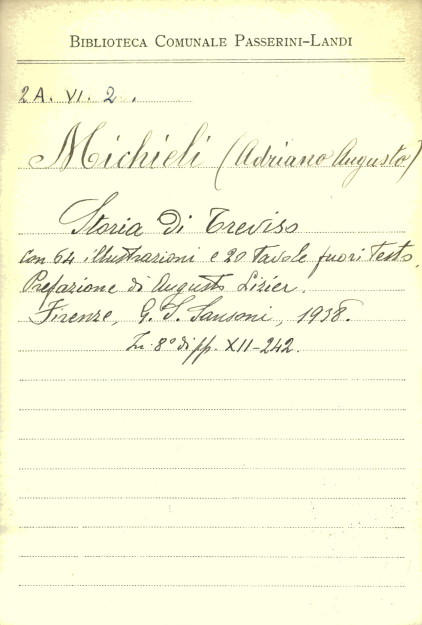 BIBLIOTECA COMUNALE PASSERINI-LANDI
2A. VI. 2.
Michieli (Adriano Augusto)
Storia di Treviso
con 64 illustrazioni e 20 tavole fuori testo.
Prefazione di Augusto Lizier.
Firenze, G. S. Sansoni, 1938.
In 8° di pp. XII-242.